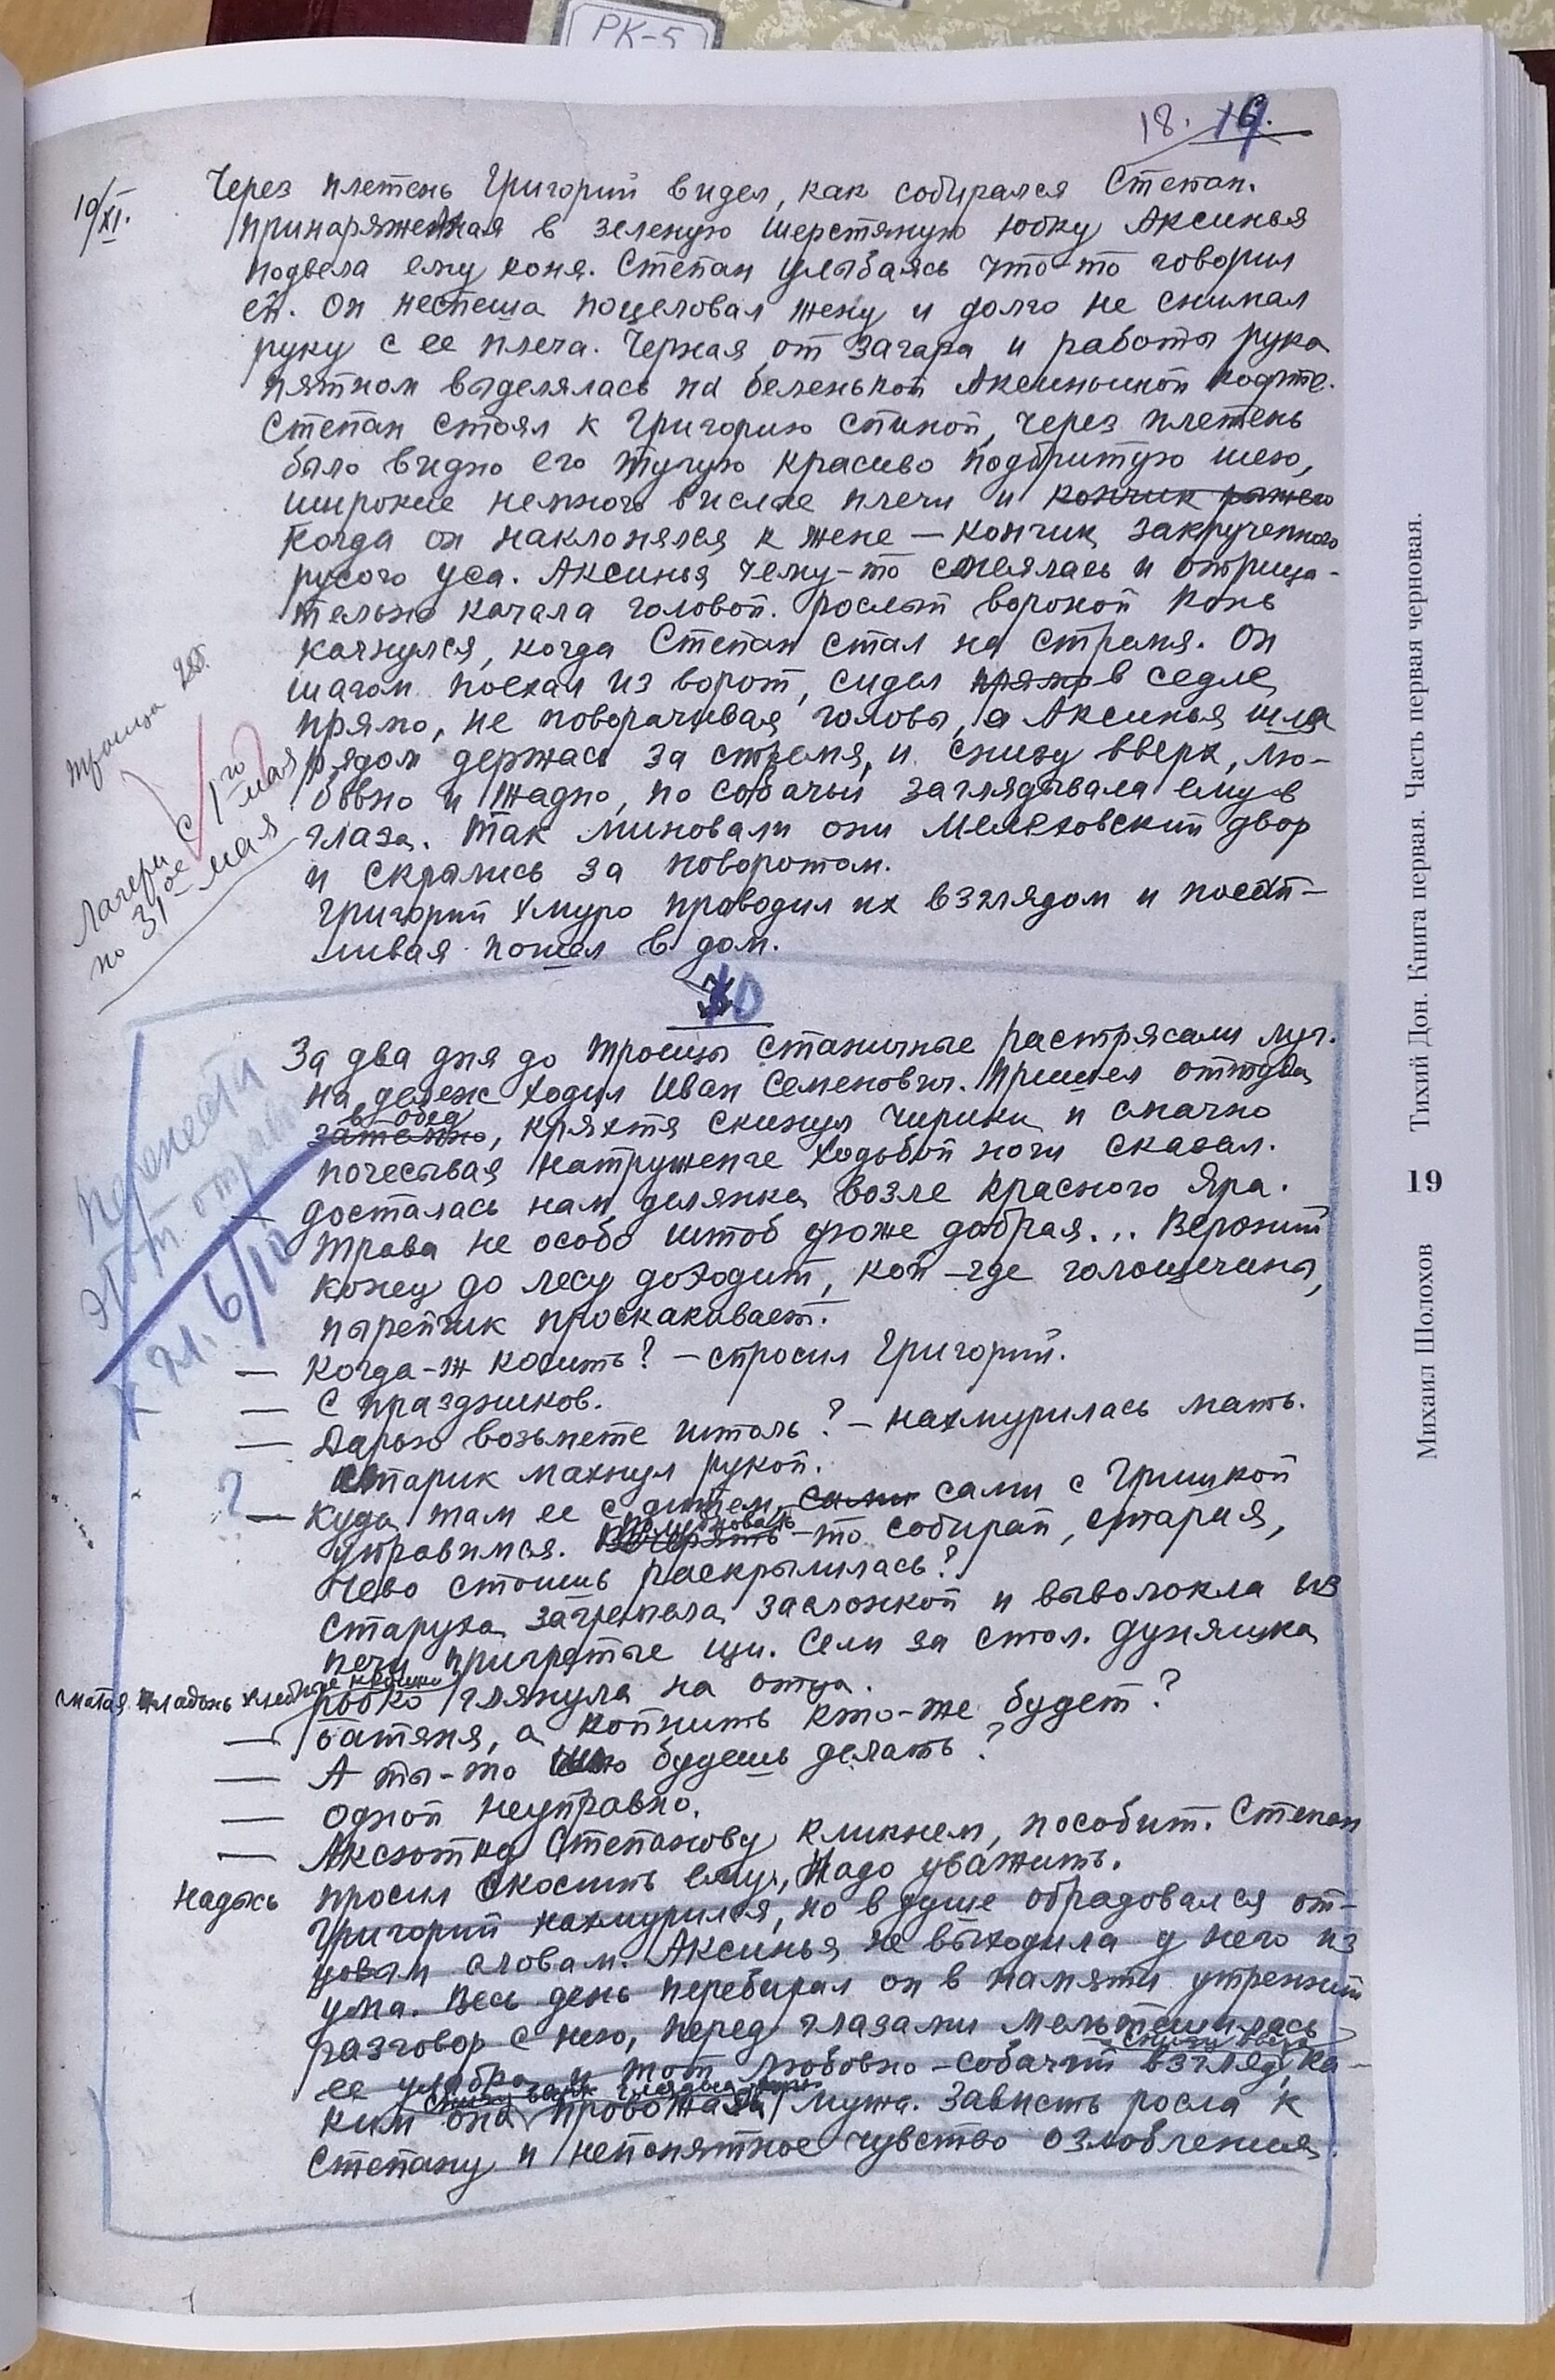 РК-5
18. 19.
10/XI.
Через плетень Григорий видел, как собирался Степан.
Принаряженная в зеленую шерстяную юбку Аксинья
подвела ему коня. Степан улыбаясь что-то говорил
ей. Он неспеша поцеловал жену и долго не снимал
руку с ее плеча. Черная от загара и работы рука
пятном выделялась на беленькой Аксиньиной кофте.
Степан стоял к Григорию спиной, через плетень
было видно его тугую красиво подбритую шею,
широкие немного вислые плечи и кончик рыжего
когда он наклонялся к жене — кончик закрученного
русого уса. Аксинья чему-то смеялась и отрица-
тельно качала головой. Рослый вороной конь
качнулся, когда Степан стал на стремя. Он
шагом поехал из ворот, сидел прямо в седле
прямо, не поворачивая головы, а Аксинья шла
рядом держась за стремя, и снизу вверх, лю-
бовно и жадно, по собачьи заглядывала ему в
глаза. Так миновали они Мелеховский двор
и скрылись за поворотом.
Григорий хмуро проводил их взглядом и поспе-
шивая пошел в дом.
Троица
Лагери с 1го мая
по 31ое мая
10
Перенести
этот отрыв
к гл. 6/10
За два дня до троицы станичные растрясали луг.
На дележ ходил Иван Семенович. Пришел оттуда
в обед
затемно, кряхтя скинул чирики и смачно
почесывая натруженые ходьбой ноги сказал.
— Досталась нам делянка возле Красного Яра.
Трава не особо штоб дюже добрая... Верхний
конец до лесу доходит, кой-где голощечины,
пырейчик проскакивает.
— Когда-ж косить? — спросил Григорий.
— С праздников.
— Дарью возьмете штоль? — нахмурилась мать.
Старик махнул рукой.
?
— Куда там ее с дитем, сами сами с Гришкой
управимся. Полудновать
Вечерять-то собирай, старая,
чево стоишь раскрылилась?
Старуха загремела заслонкой и выволокла из
печи пригретые щи. Сели за стол. Дуняшка
сметая ладонь хлебные крошки
робко глянула на отца.
— Батяня, а копнить кто-же будет?
— А ты-то што будешь делать?
— Одной неуправно.
— Аксютку Степанову кликнем, пособит. Степан
надысь просил скосить ему, Надо уважить.
Григорий нахмурился, но в душе обрадовался от-
цовым словам. Аксинья не выходила у него из
ума. Весь день перебирал он в памяти утренний
разговор с нею, перед глазами мельтешилась
снизу вверх
ее улыбка и тот любовно-собачий взгляд, ка-
ким она провожала мужа. Зависть росла к
Степану и непонятное чувство озлобления.
Михаил Шолохов 19 Тихий Дон. Книга первая. Часть первая черновая.